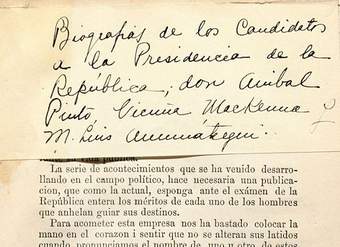 Biografias de los Candidatos
a la Presidencia de la
República, don Anibal
Pinto, Vicuña Mackenna
M. Luis Amunategui.
La serie de acontecimientos que se ha venido desarro-
llando en el campo político, hace necesaria una publica-
cion, que como la actual, esponga ante el exámen de la
República entera los méritos de cada uno de los hombres
que anhelan guiar sus destinos.
Para acometer esta empresa nos ha bastado colocar la
mano en el corazon i sentir que no se alteran sus latidos
cuando pronunciamos el nombre de uno u otro de estos